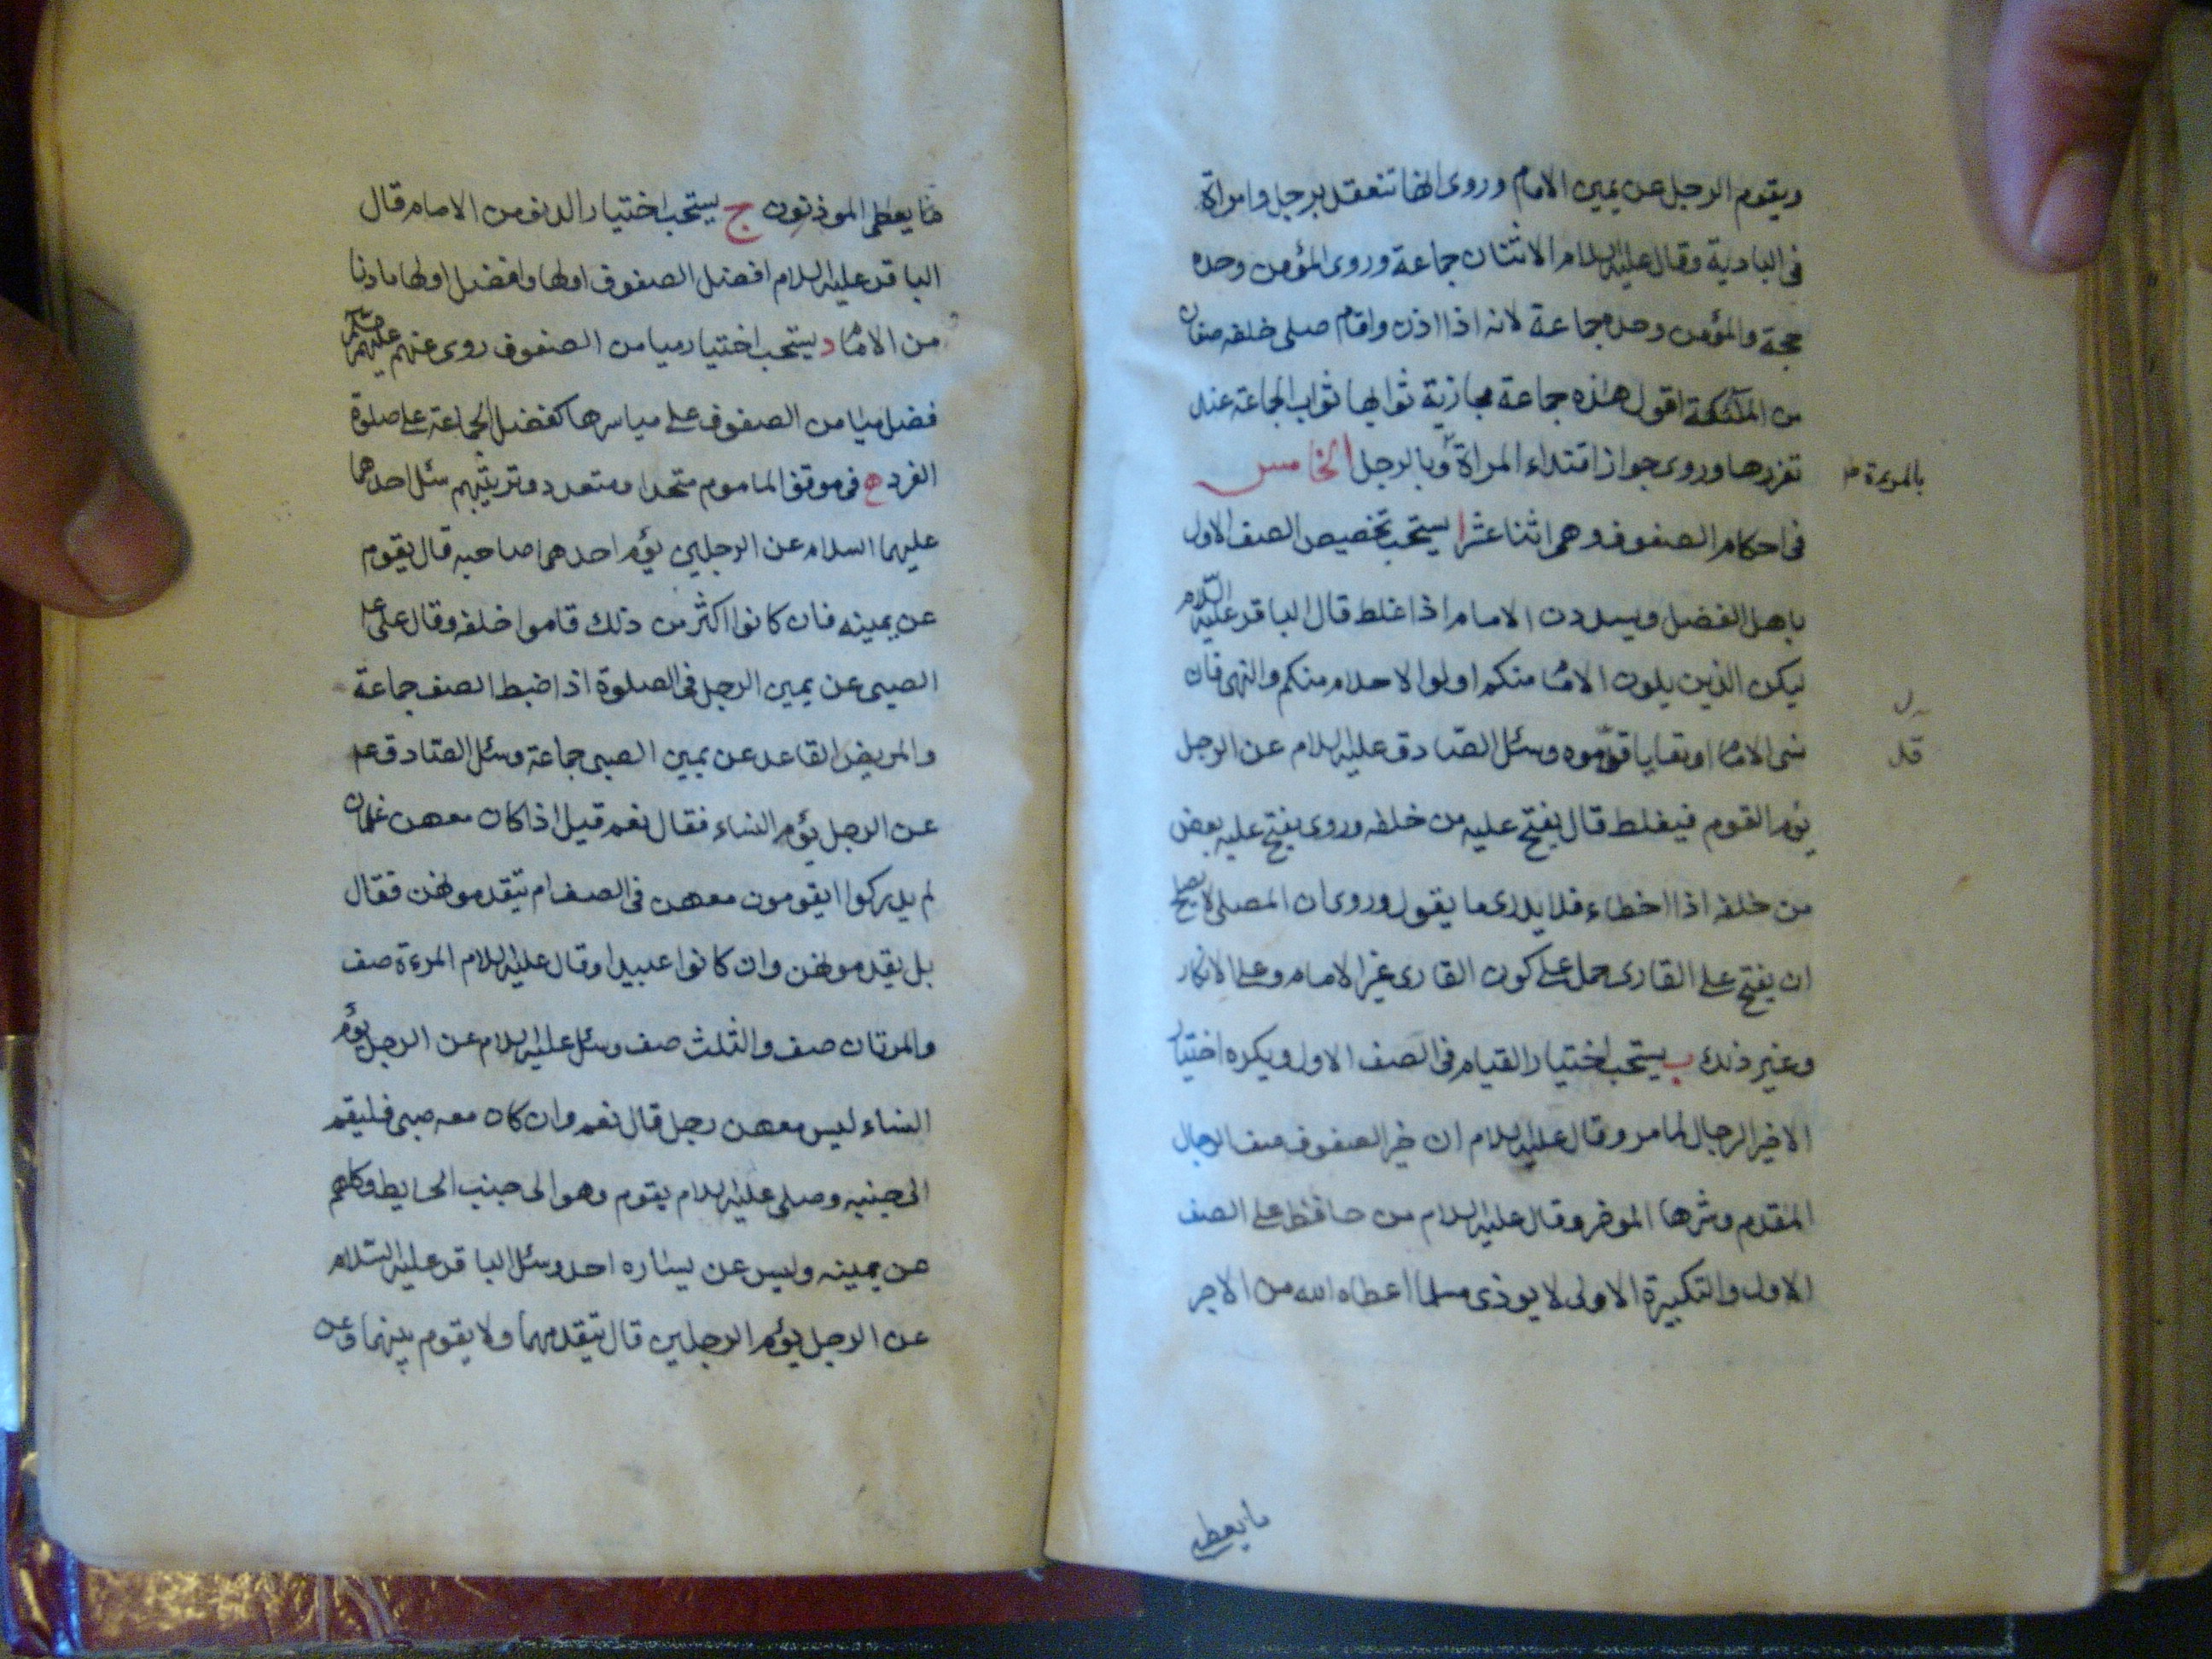 ويقوم الرجل عن يمين الامام وروى انها تنعقد برجل وامراة
فى البادية وقال عليه السلام الاثنان جماعة وروى المؤمن وحده
حجة والمؤمن وحده جماعة لانه اذا اذن واقام صلى خلفه صفان
من الملئكة اقول هذه جماعة مجازية ثوابها ثواب الجماعة عند
تعذرها وروى جواز اقتداء المراة وبالرجل الخامس
بالمرءة
فى احكام الصفوف وهى اثنا عشر ا يستحب تخصيص الصف الاول
باهل الفضل ويسددن الامام اذا غلط قال الباقر عليه السلام
ليكن الذين يلون الامام منكم اولوا الاحلام منكم والنهى فان
نسى الامام او تعايا قوموه وسئل الصادق عليه السلام عن الرجل
يؤم القوم فيغلط قال يفتح عليه من خلفه وروى يفتح عليه بعض
من خلفه اذا اخطاء فلا يدرى ما يقول وروى ان المصلى لا يصلح
ان يفتح على القارى حمل على كون القارى غير الامام وعلى الانكار
وغير ذلك ب يستحب اختيار القيام فى الصف الاول ويكره اختيار
الاخير الرجال لما مر وقال عليه السلام ان خير الصفوف صف الرجال
المقدم وشرها المؤخر وقال عليه السلام من حافظ على الصف
الاول والتكبيرة الاولى لا يوذى مسلما اعطاه الله من الاجر
ما يعطى
ما يعطى الموذنون ج يستحب اختيار الدنو من الامام قال
الباقر عليه السلام افضل الصفوف اولها وافضل اولها ما دنا
من الامام د يستحب اختيار ميامن الصفوف روى عنهم عليهم السلام
فضل ميامن الصفوف على مياسرها كفضل الجماعة على صلوة
الفرد ه فى موقف الماموم متحدا ومتعدد وترتيبهم سئل احدهما
عليهما السلام عن الرجلين يؤم احدهما صاحبه قال يقوم
عن يمينه فان كانوا اكثر من ذلك قاموا خلفه وقال على ع
الصبى عن يمين الرجل فى الصلوة اذا ضبط الصف جماعة
والمريض القاعد عن يمين الصبى جماعة وسئل الصادق عم
عن الرجل يؤم النساء فقال نعم قيل اذا كان معهن غلمان
لم يدركوا ايقومون معهن فى الصف ام يتقدمونهن فقال
بل يقدمونهن وان كانوا عبيدا وقال عليه السلام المرءة صف
والمرتان صف والثلث صف وسئل عليه السلام عن الرجل يؤم
النساء ليس معهن رجل قال نعم وان كان معه صبى فليقم
الى جنبه وصلى عليه السلام يقوم وهو الى جنب الحايط وكلهم
عن يمينه وليس عن يساره احد وسئل الباقر عليه السلام
عن الرجل يؤم الرجلين قال يتقدمهما ولا يقوم بينهما وعن